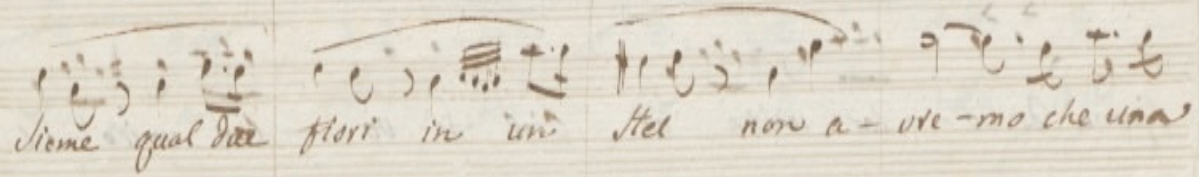 sieme qual due fiori in un stel non a - vre - mo che una